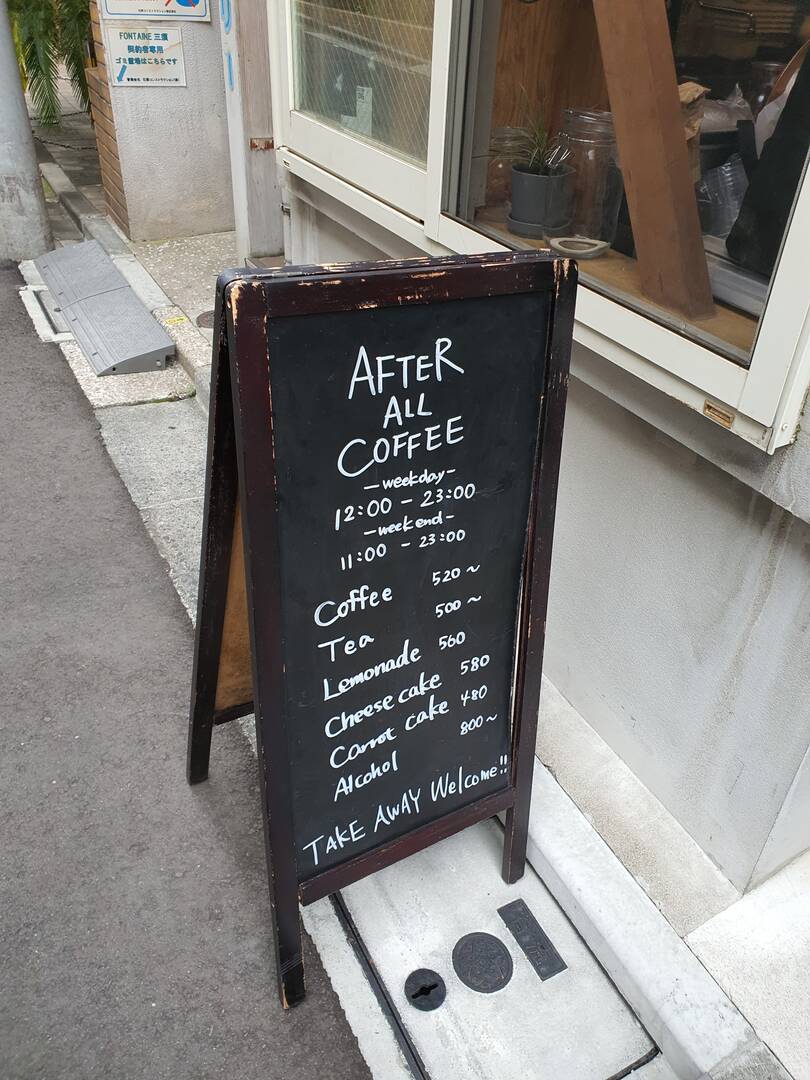 FONTAINE 三宿
契約者専用
ゴミ置場はこちらです
AFTER
ALL
COFFEE
-weekday-
12:00 - 23:00
-weekend-
11:00 - 23:00
Coffee 520~
Tea 500~
Lemonade 560
Cheese cake 580
Carrot cake 480
Alcohol 800~
TAKE AWAY Welcome!!